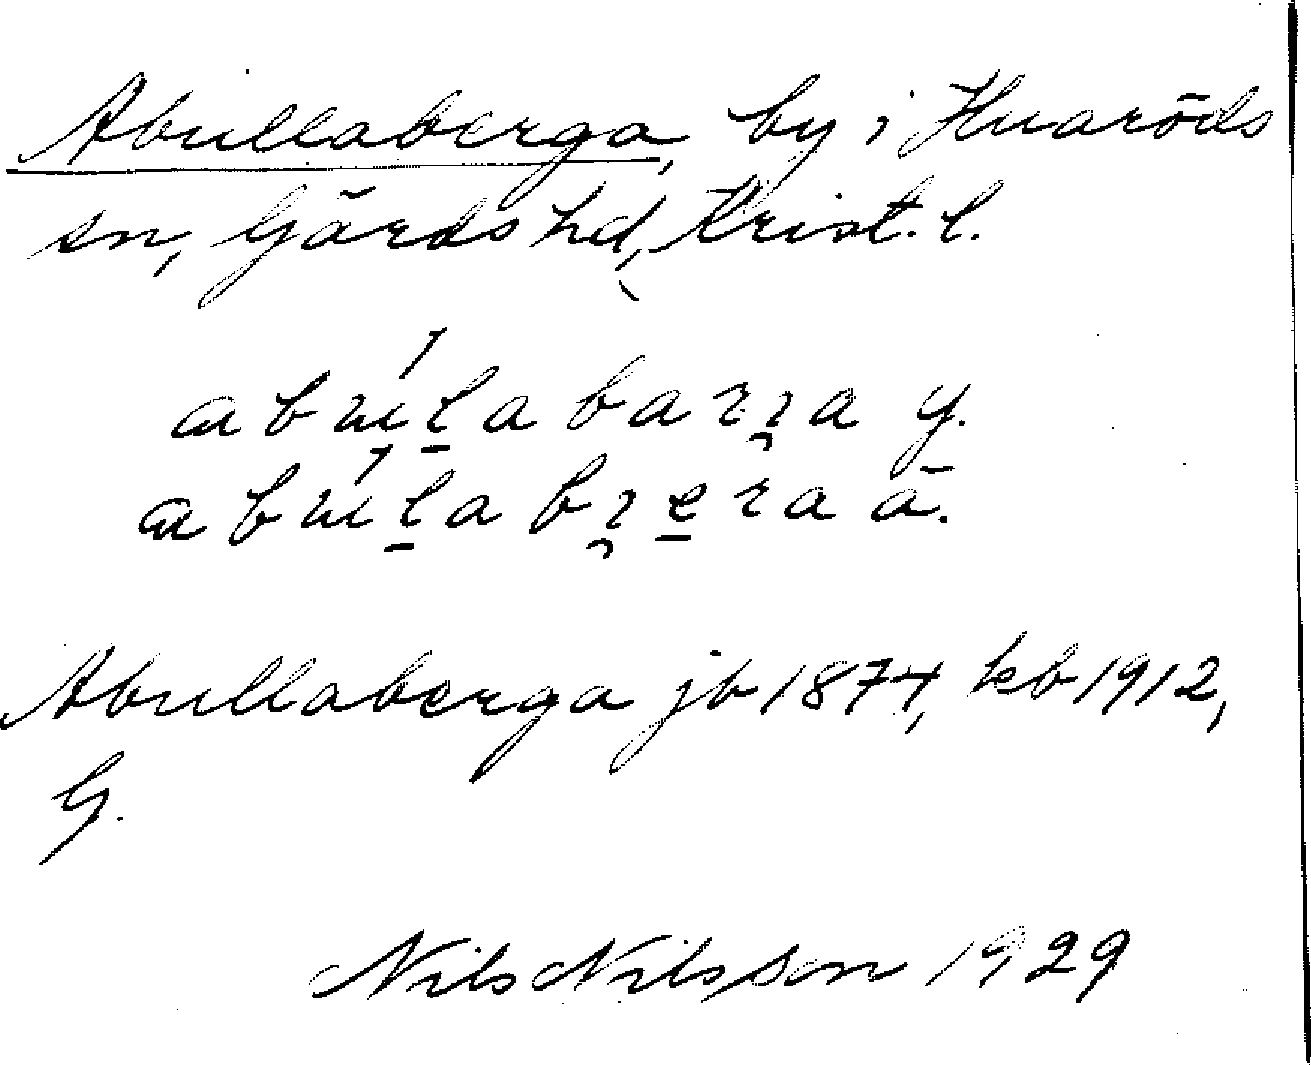 Abullaberga, by i Huaröds
sn, Gärds hd, Krist. l.
abúlabarra y.
abúlabrera ä.
Abullaberga jb 1874, kb 1912,
G.
Nils Nilsson 1929